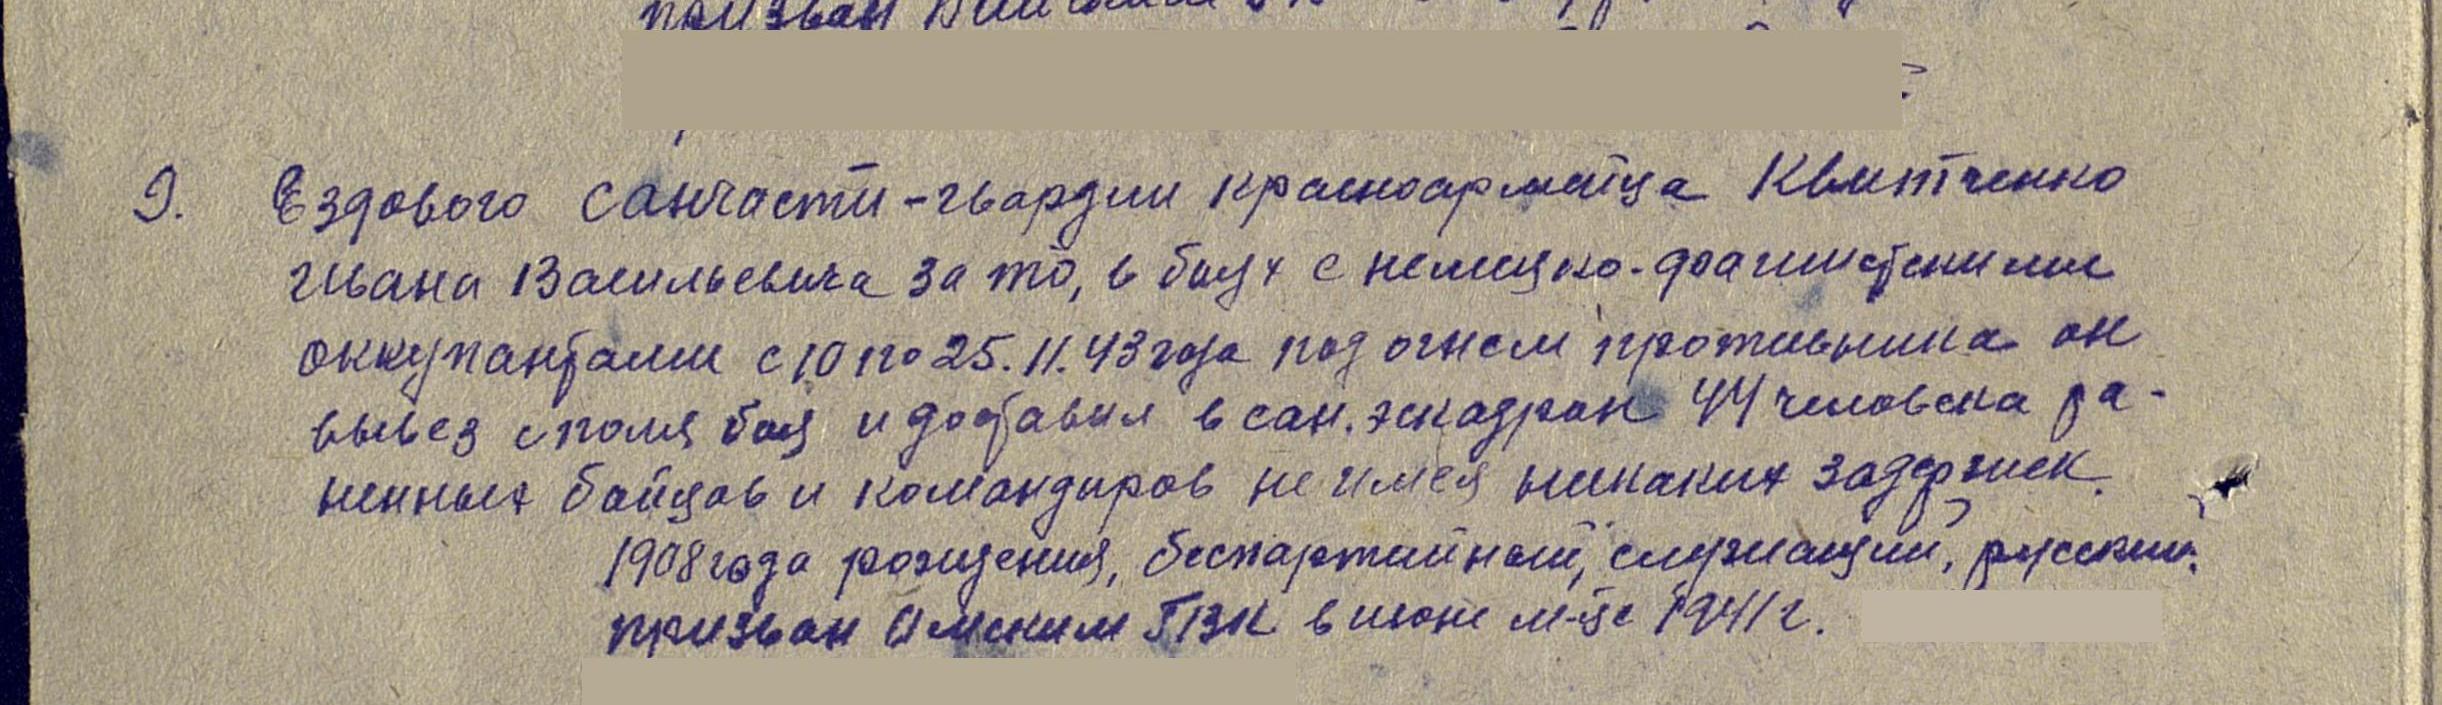 призван
9. Ездового санчасти-гвардии красноармейца Квитченко
Ивана Васильевича за то, в боях с немецко-фашистскими
оккупантами с 10 по 25.11.43 года под огнем противника он
вывез с поля боя и доставил в сан. эскадрон 44 человека ра-
ненных бойцов и командиров не имея никаких задержек.
1908 года рождения, беспартийный, служащий, русский.
призван Омским ГВК в июне м-це 1941 г.